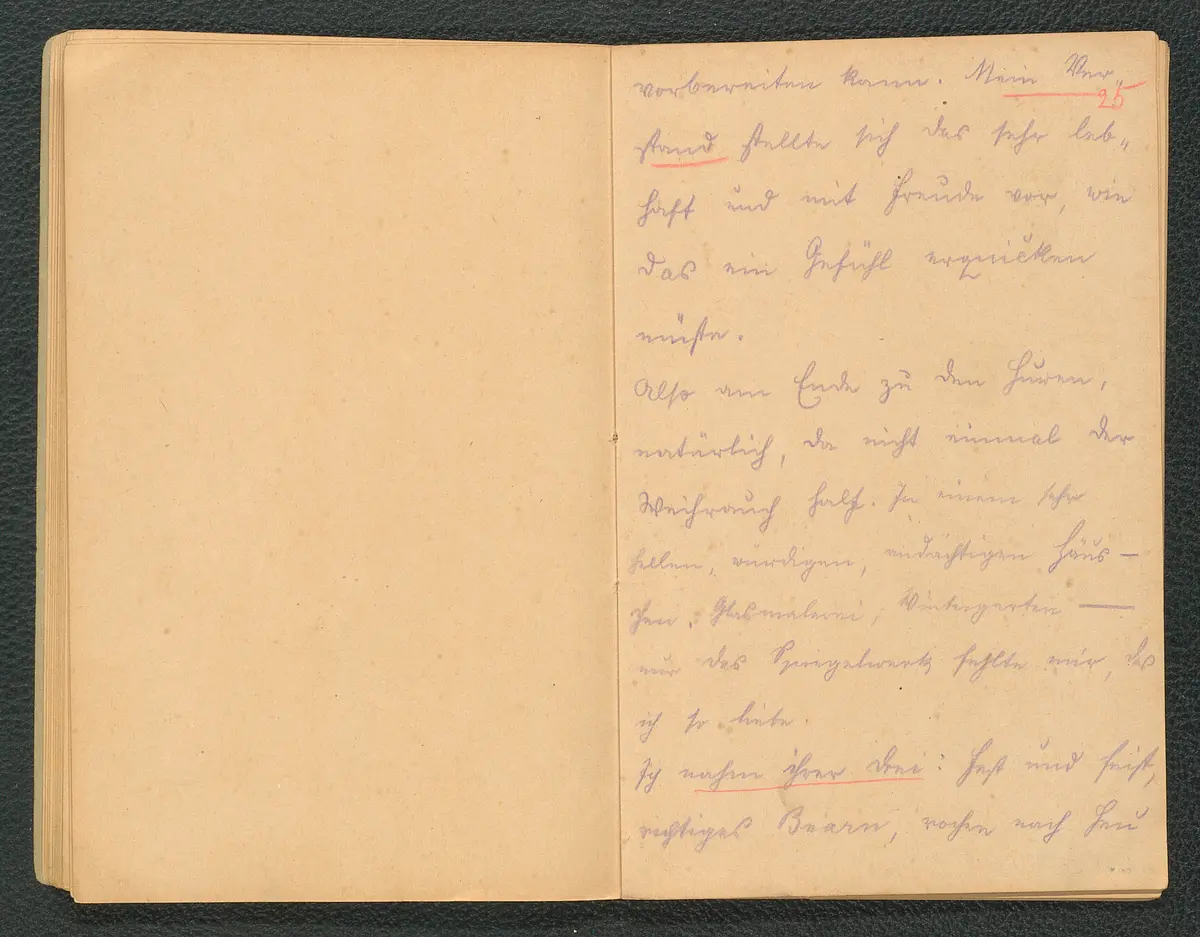 vorbereiten kann. Mein Ver-
25
stand stellte sich das sehr leb-
haft und mit Freude vor, wie
das ein Gefühl erquicken
müsste.
Also am Ende zu den Huren,
natürlich, da nicht einmal der
Weihrauch half. In einem sehr
hellen, würdigen, andächtigen Häus-
chen. Glasmalerei, Wintergarten —
nur das Spiegelwerk fehlte mir, das
ich so liebe.
Ich nahm ihrer drei: Fest und feist,
richtiges Bearn, rochen nach Heu